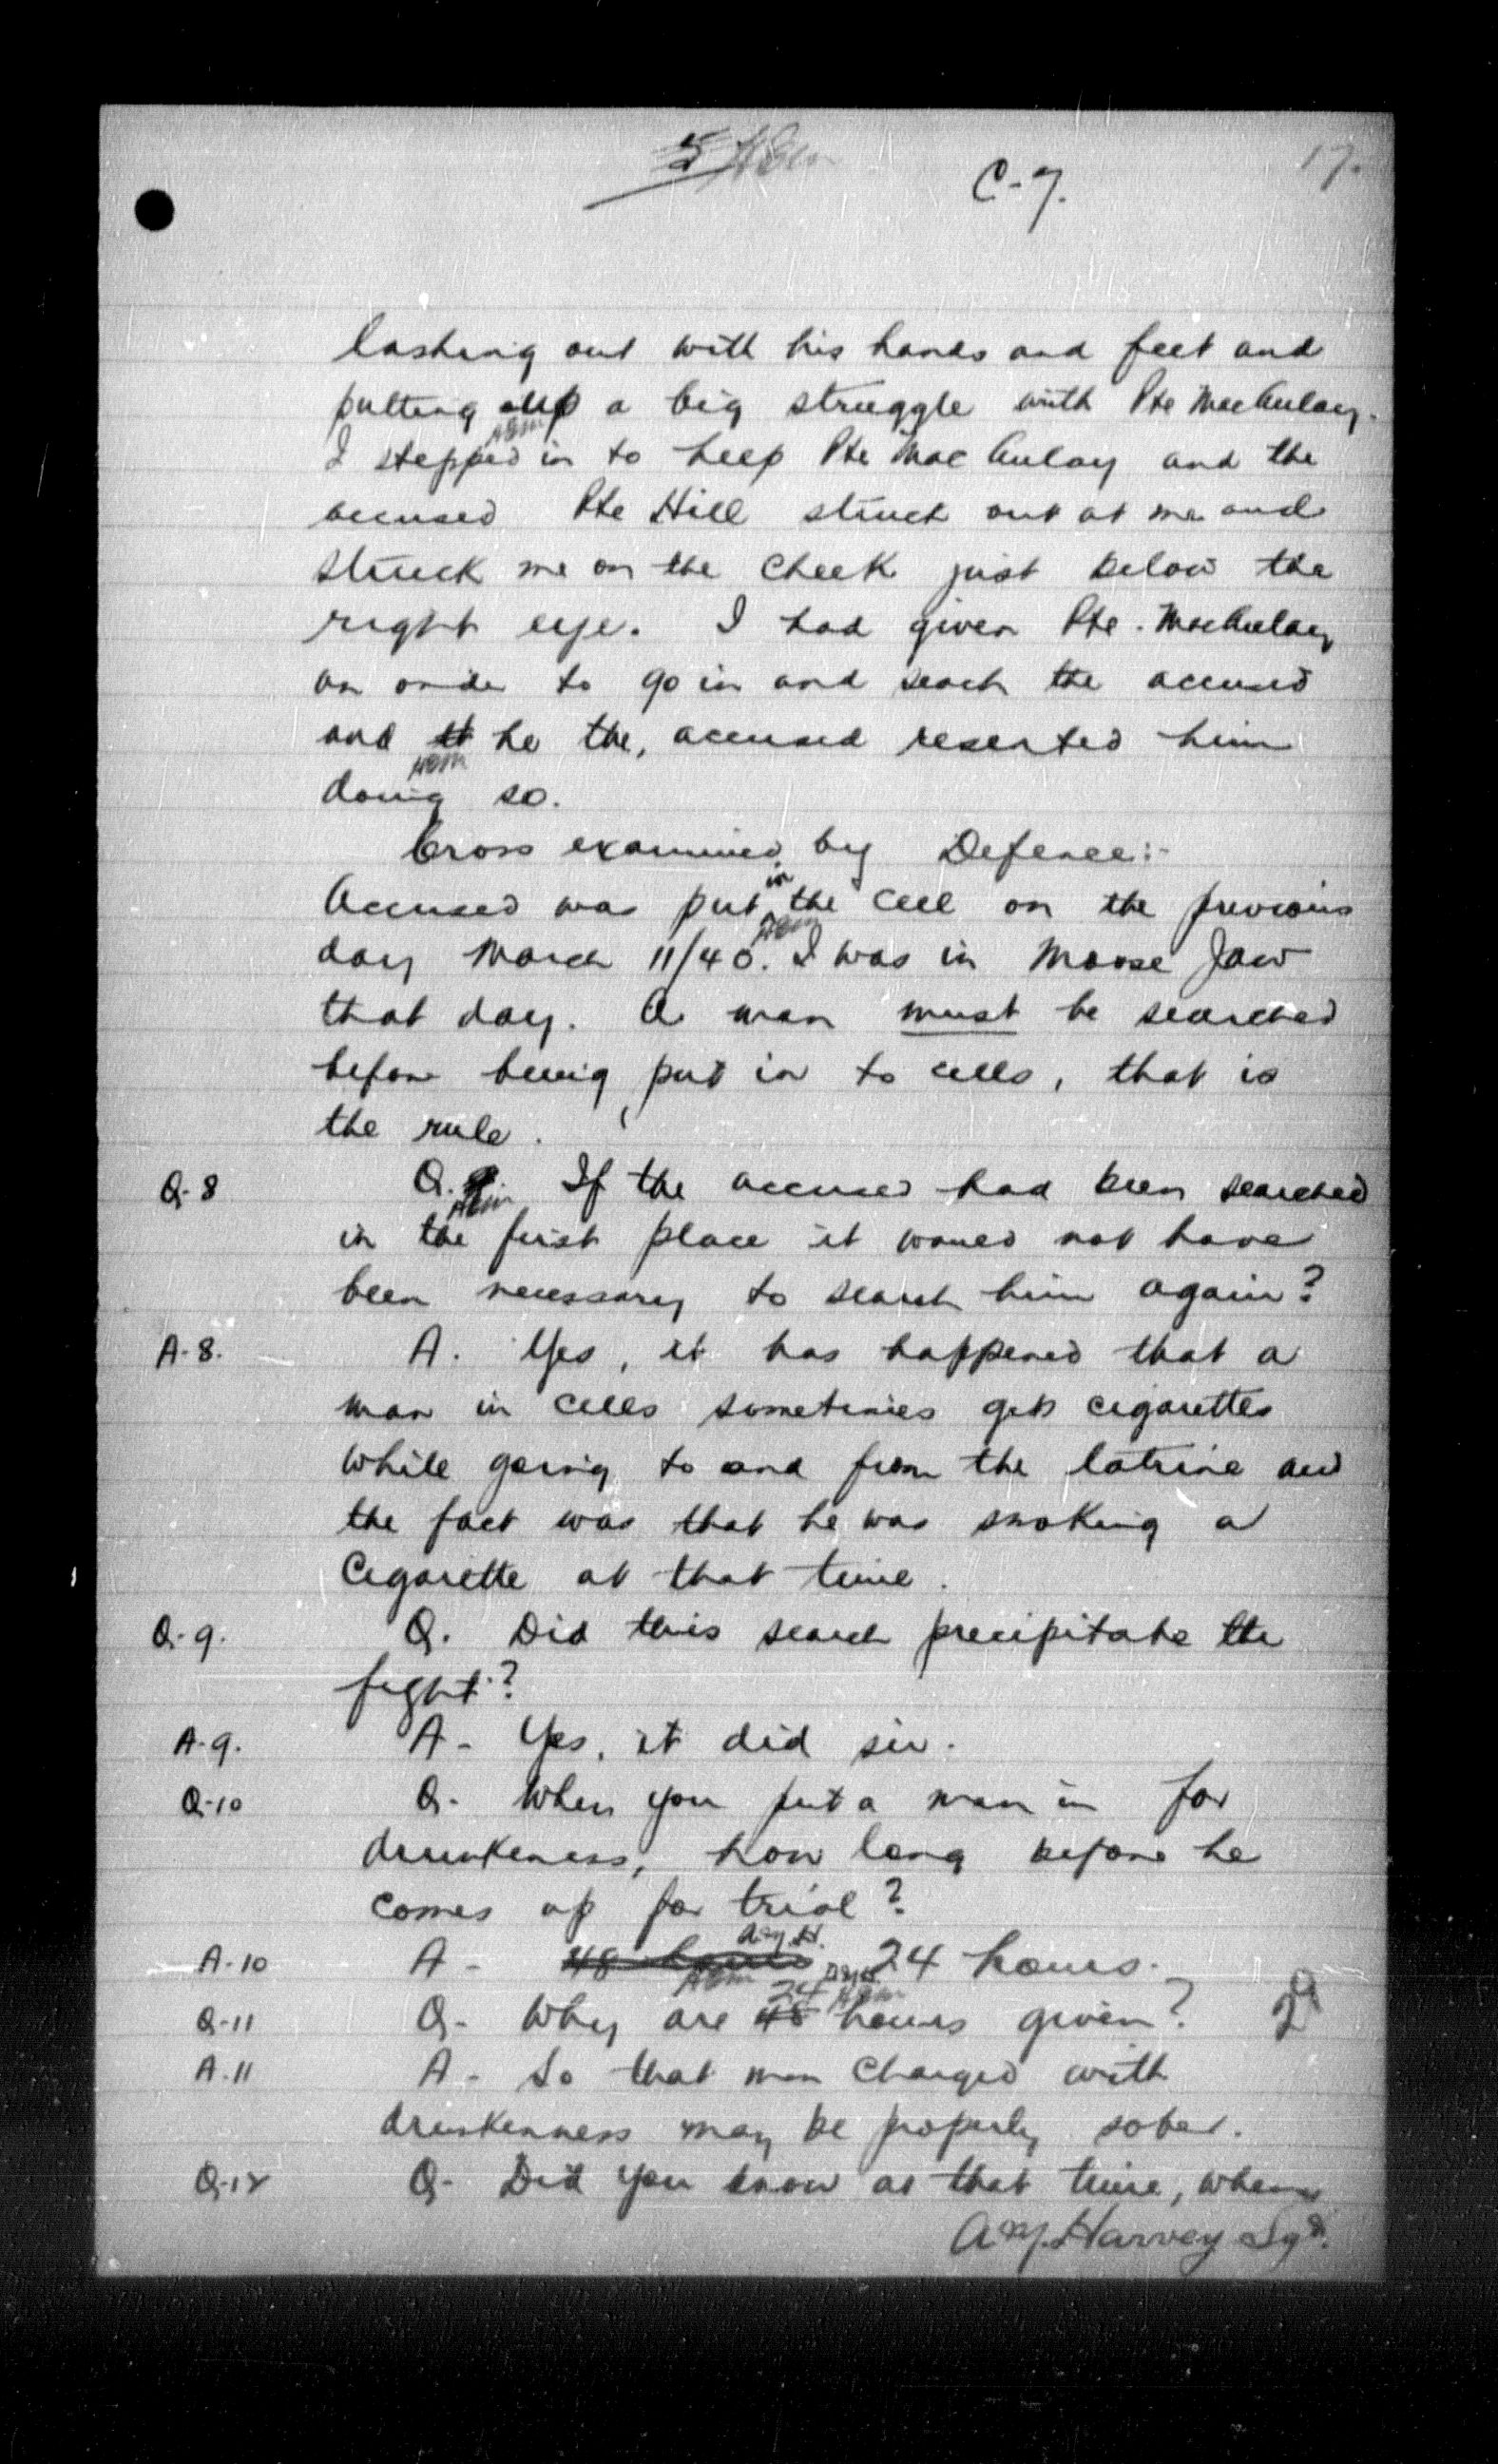 5
17.
C-7.
lashing out with his hands and feet and
putting up a big struggle with Pte MacAulay.
I stepped in to help Pte MacAulay and the
accused Pte Hill struck out at me and
struck me on the cheek just below the
right eye. I had given Pte. MacAulay
an order to go in and search the accused
and he the, accused resented him
doing so.
Cross examined by Defence:-
Accused was put in the cell on the previous
day March 11/40. I was in Moose Jaw
that day. A man must be searched
before being put in to cells, that is
the rule.
Q-8 Q. If the accused had been searched
in the first place it would not have
been necessary to search him again?
A-8. A. Yes, it has happened that a
man in cells sometimes gets cigarettes
while going to and from the latrine and
the fact was that he was smoking a
Cigarette at that time.
Q-9. Q. Did this search precipitate the
fight?
A-9. A- Yes, it did sir.
Q-10 Q- When you put a man in for
drunkeness, how long before he
comes up for trial?
A.y.H.
A-10 A- 48 hours 24 hours.
24
Q-11 Q- Why are 48 hours given?
A.11 A- So that men Charged with
drunkenness may be properly sober.
Q-12 Q- Did you know at that time, when
A.y. Harvey Sgt.